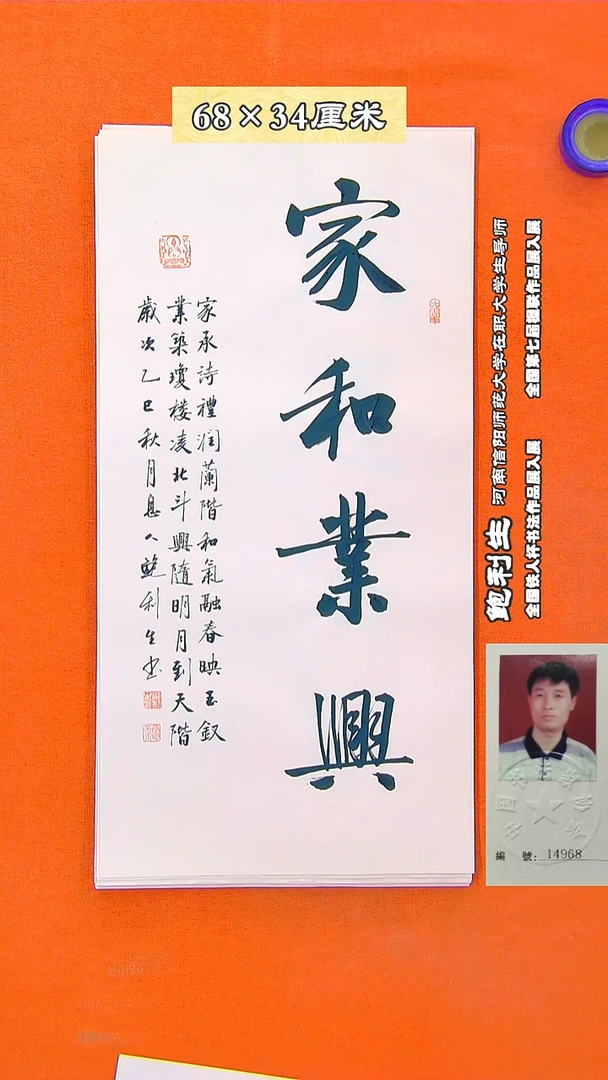 68×34厘米
家和業興
家承詩禮润蘭階和氣融春映玉釵
業築瓊楼凌北斗興隨明月到天階
歲次乙巳秋月息人鲍利生书
鲍利生 河南信阳师范大学在职大学生导师
全国铁人杯书法作品展入展 全国第七届楹联作品展入展
編號：14968